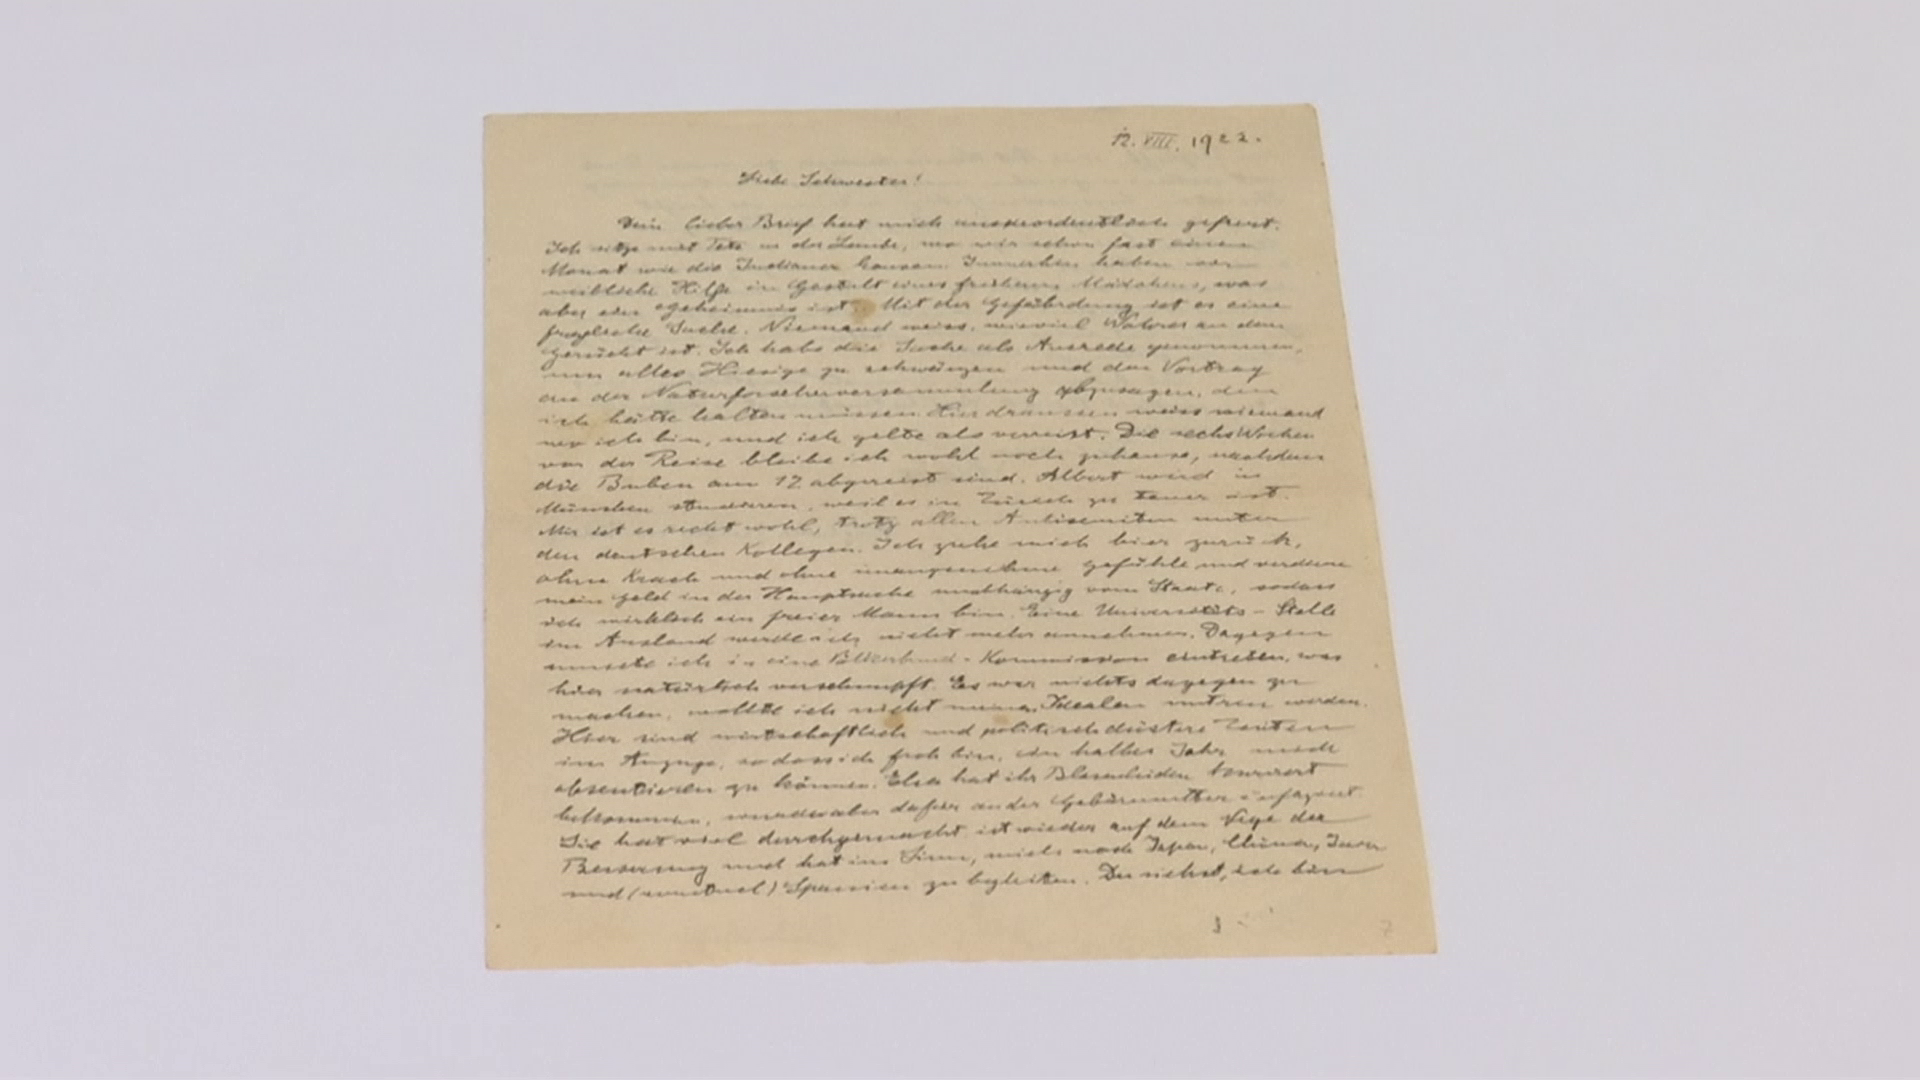 12. VIII. 1922.
Liebe Schwester!
Dein lieber Brief hat mich ausserordentlich gefreut.
Ich sitze mit Tete in der Laube, wo wir schon fast einen
Monat wie die Indianer hausen. Immerhin haben wir
weibliche Hilfe in Gestalt eines früheren Mädchens, was
aber ein Geheimnis ist. Mit der Gefährdung ist es eine
fragliche Sache. Niemand weiss, wieviel Wahres an dem
Gerücht ist. Ich habe die Sache als Ausrede genommen,
um alles Hiesige zu schwänzen und den Vortrag
an der Naturforscherversammlung abzusagen, den
ich hätte halten müssen. Hier draussen weiss niemand
wo ich bin, und ich gelte als verreist. Die sechs Wochen
vor der Reise bleibe ich wohl noch zuhause, nachdem
die Buben am 12 abgereist sind. Albert wird in
München studieren, weil es in Zürich zu teuer ist.
Mir ist es recht wohl, trotz allen Antisemiten unter
den deutschen Kollegen. Ich ziehe mich hier zurück,
ohne Krach und ohne unangenehme Gefühle und verdiene
mein Geld in der Hauptsache unabhängig vom Staate, sodass
ich wirklich ein freier Mann bin. Eine Universitäts-Stelle
im Ausland werde ich nicht mehr annehmen. Dagegen
musste ich in eine Völkerbund-Kommission eintreten, was
hier natürlich verschnupft. Es war nichts dagegen zu
machen, wollte ich nicht meinen Idealen untreu werden.
Hier sind wirtschaftlich und politisch düstere Zeiten
im Anzuge, sodass ich froh bin, ein halbes Jahr mich
absentieren zu können. Elsa hat ihr Blasenleiden
bekommen, wurde aber dafür an der Gebärmutter
Sie hat viel durchgemacht ist wieder auf dem Wege der
Besserung und hat im Sinn, mich nach Japan, China, Java
und (eventuel) Spanien zu begleiten. Du siehst, ich bin